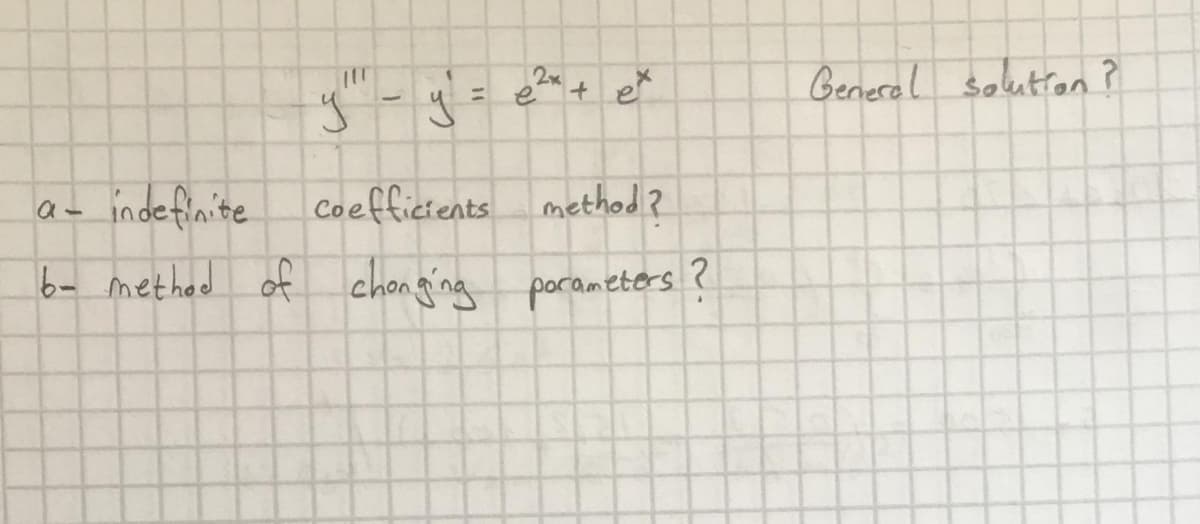 y''' - y' = e^{2x} + e^x General solution?
a- indefinite coefficients method?
b- method of changing parameters?